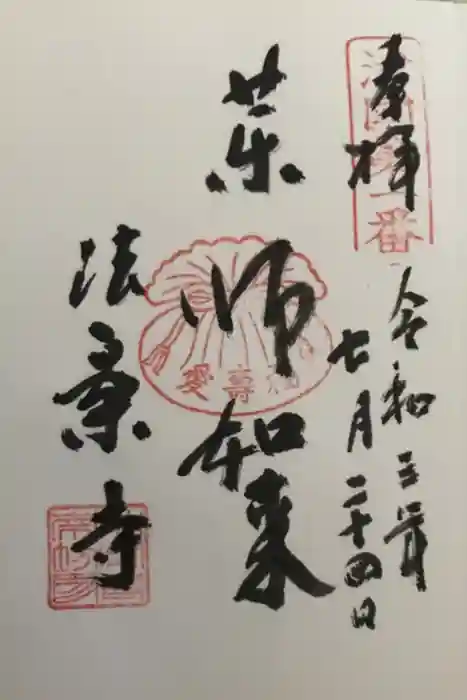 奉拝
令和三年
七月二十四日
薬師如来
福壽愛
法案寺